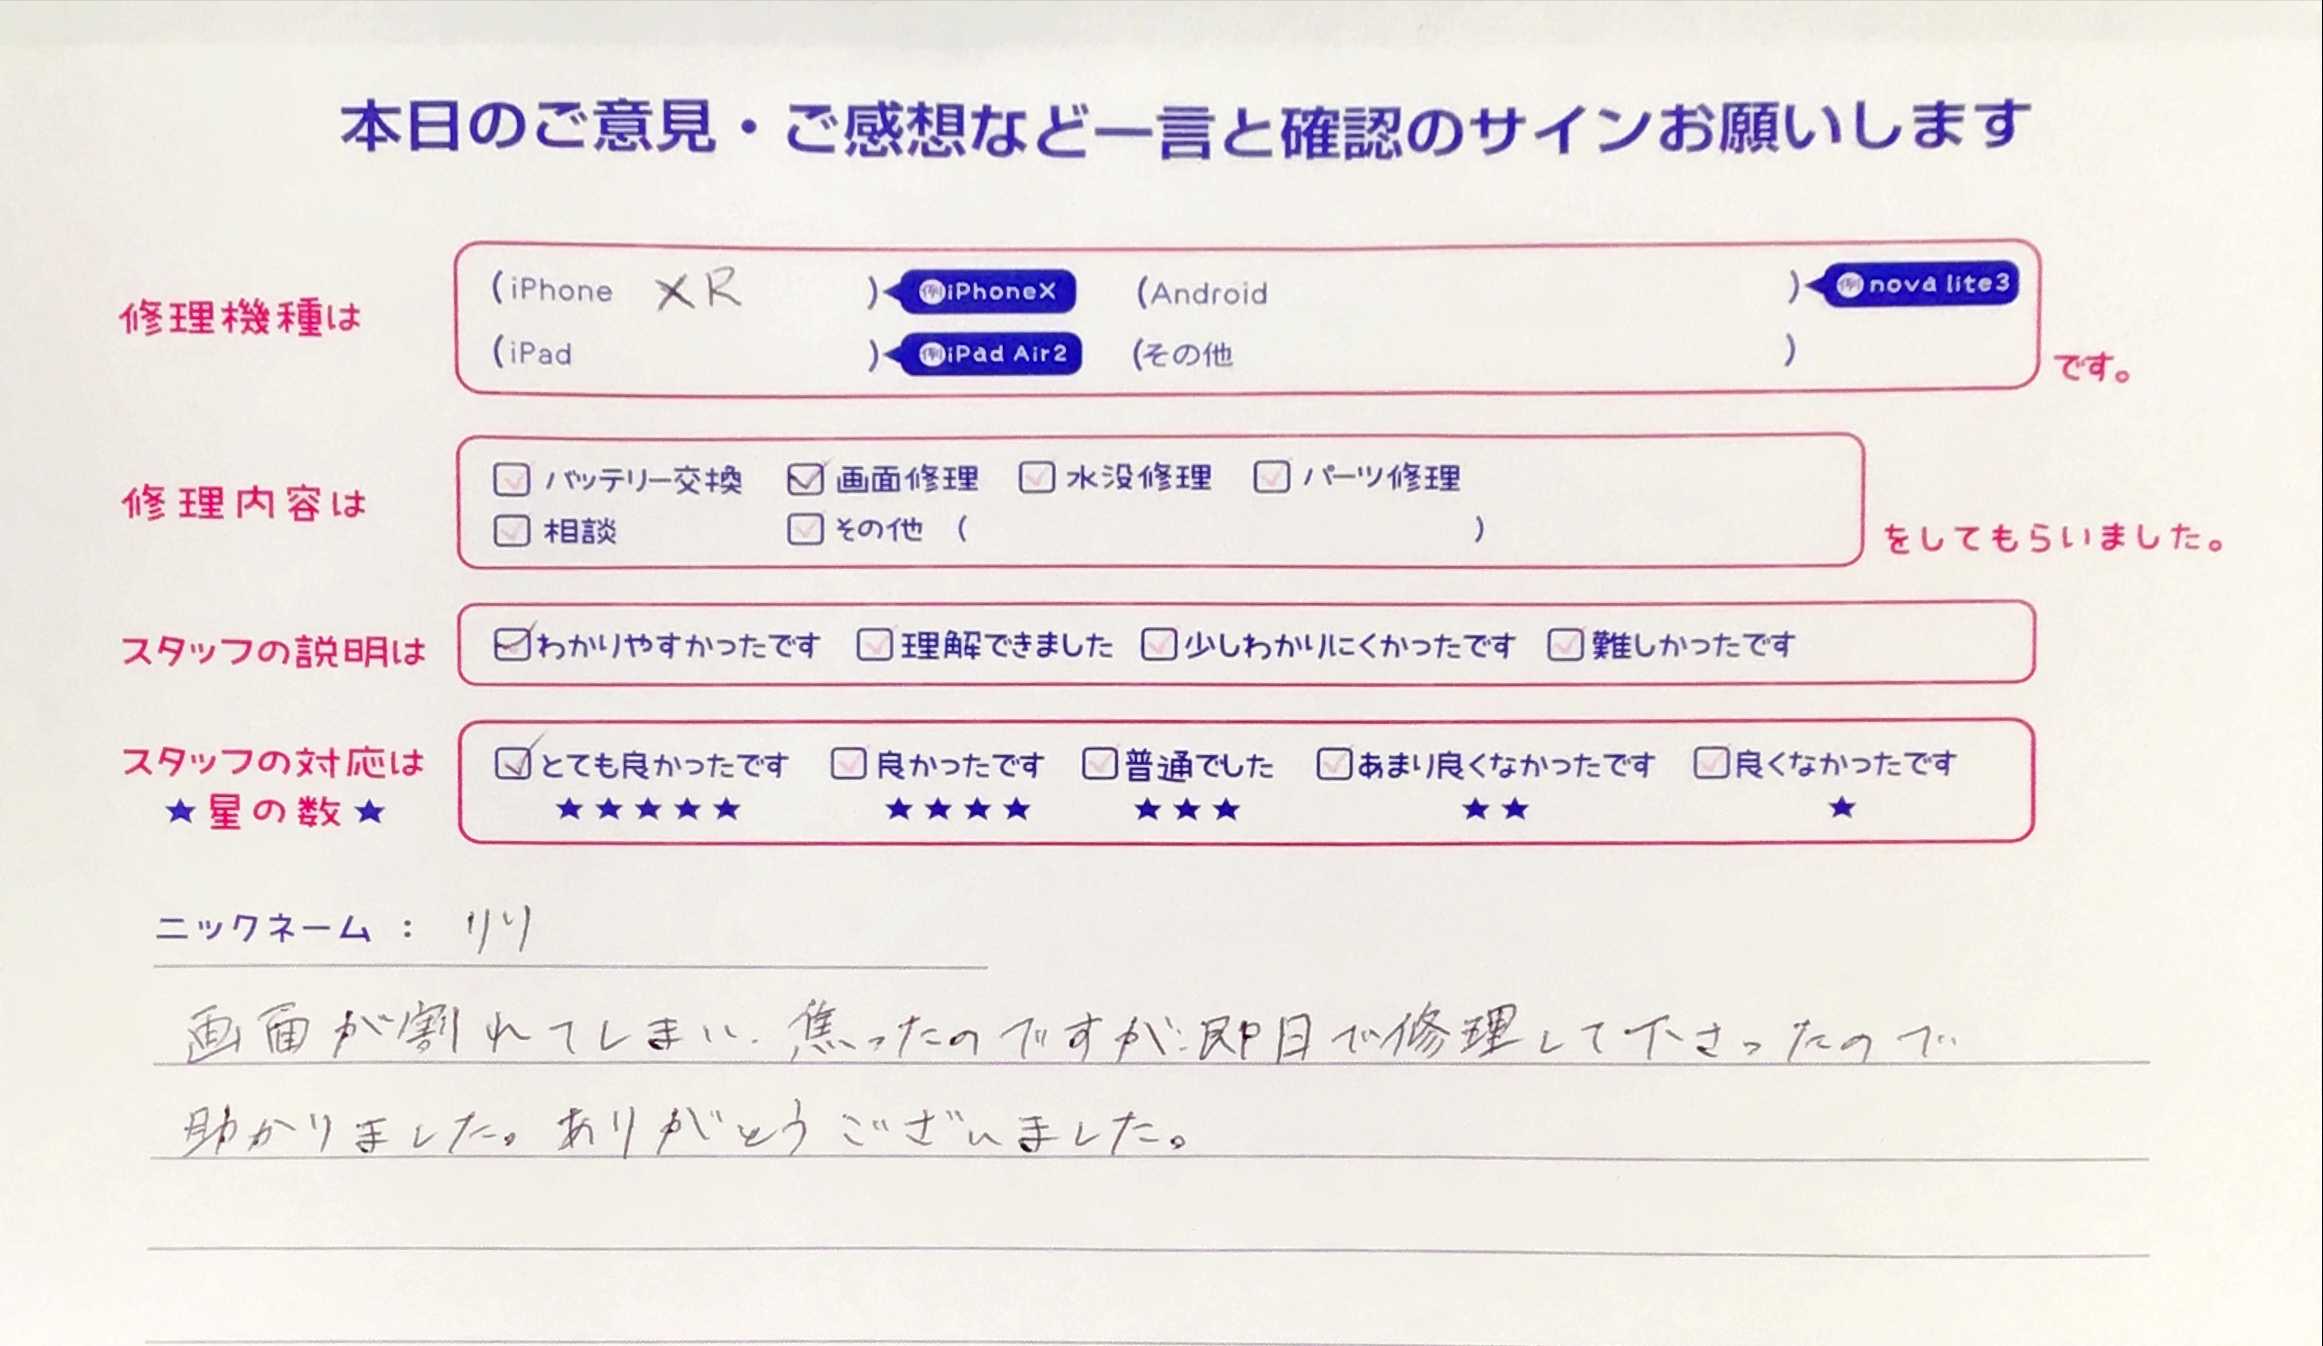 本日のご意見・ご感想など一言と確認のサインお願いします
修理機種は
(iPhone XR ) 例iPhoneX (Android ) 例nova lite3
(iPad ) 例iPad Air2 (その他 )
です。
修理内容は
バッテリー交換 画面修理 水没修理 パーツ修理
相談 その他 ( )
をしてもらいました。
スタッフの説明は
わかりやすかったです 理解できました 少しわかりにくかったです 難しかったです
スタッフの対応は
★星の数★
とても良かったです 良かったです 普通でした あまり良くなかったです 良くなかったです
★★★★★ ★★★★ ★★★ ★★ ★
ニックネーム： リリ
画面が割れてしまい、焦ったのですが、即日で修理して下さったので
助かりました。ありがとうございました。